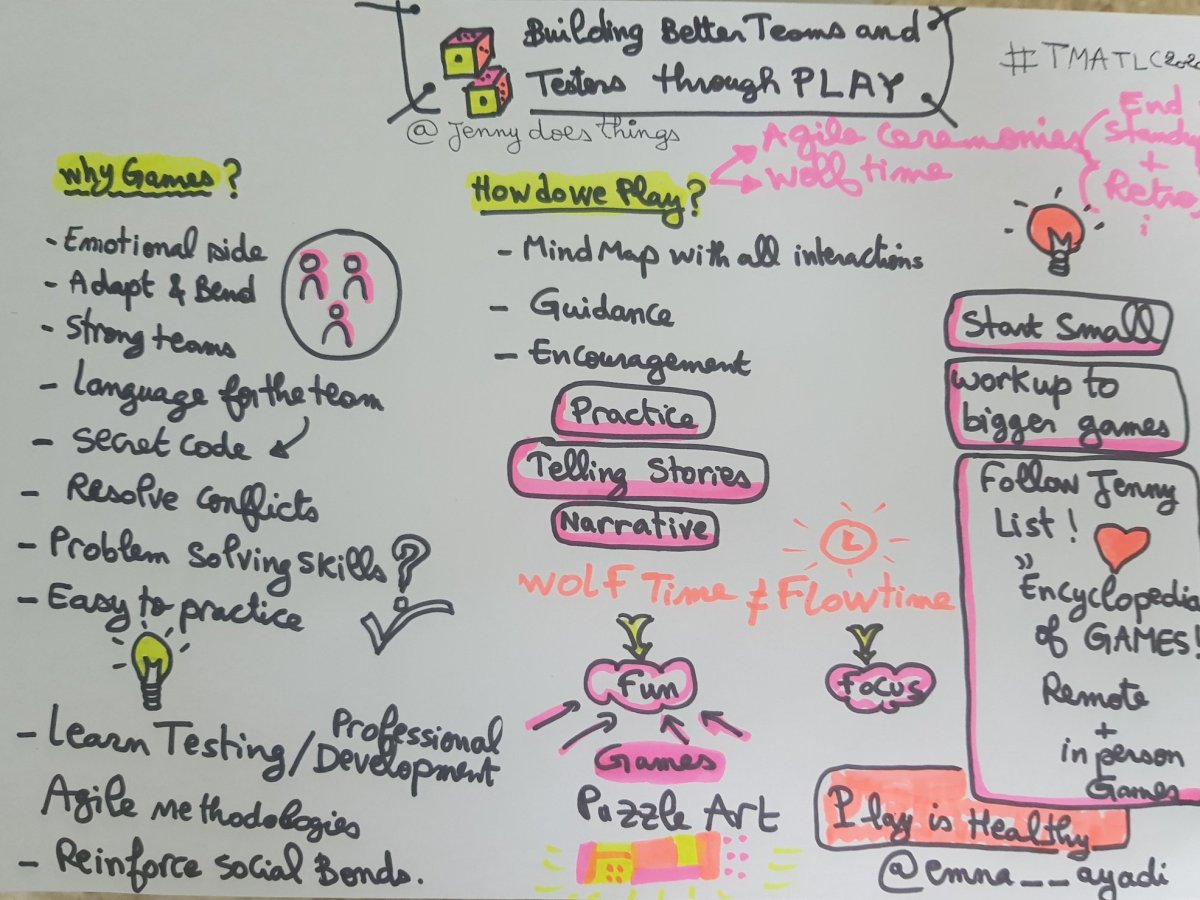 Building Better Teams and
Testers through PLAY
@Jennydoesthings
#TMATLC2020
Agile ceremonies
Wolf time
End
Standup
+
Retro
why Games?
- Emotional side
- Adapt & Bend
- Strong teams
- Language for the team
- Secret code
- Resolve conflicts
- Problem Solving skills
- Easy to practice
- Learn Testing / Professional
Development
Agile methodologies
- Reinforce Social Bonds.
How do we Play?
- Mind Map with all interactions
- Guidance
- Encouragement
Practice
Telling Stories
Narrative
Wolf Time ≠ Flowtime
Fun
Focus
Games
Puzzle Art
Start Small
work up to
bigger games
Follow Jenny
List!
"Encyclopedia
of GAMES!
Remote
+
in person
Games
Play is Healthy
@emna__ayadi